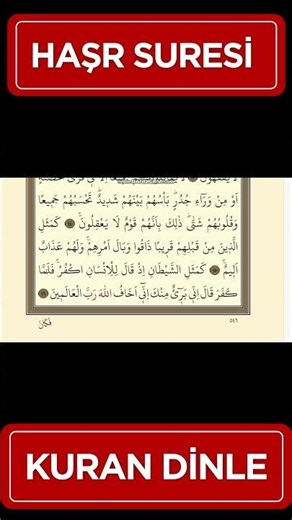 HAŞR SURESİ
اَوْ مِنْ وَرَٓاءِ جُدُرٍۜ بَأْسُهُمْ بَيْنَهُمْ شَد۪يدٌۜ تَحْسَبُهُمْ جَم۪يعًا
وَقُلُوبُهُمْ شَتّٰىۜ ذٰلِكَ بِاَنَّهُمْ قَوْمٌ لَا يَعْقِلُونَۚ ﴿١٤﴾ كَمَثَلِ
الَّذ۪ينَ مِنْ قَبْلِهِمْ قَر۪يبًا ذَاقُوا وَبَالَ اَمْرِهِمْۚ وَلَهُمْ عَذَابٌ
اَل۪يمٌۚ ﴿١٥﴾ كَمَثَلِ الشَّيْطَانِ اِذْ قَالَ لِلْاِنْسَانِ اكْفُرْۚ فَلَمَّا
كَفَرَ قَالَ اِنّ۪ي بَر۪ٓيءٌ مِنْكَ اِنّ۪ٓي اَخَافُ اللّٰهَ رَبَّ الْعَالَم۪ينَ ﴿١٦﴾
٥٤٦ فَكَانَ
KURAN DİNLE